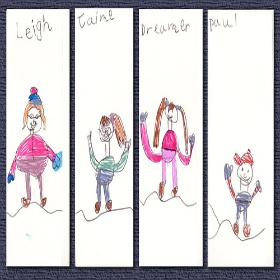 Leigh
Taine
Dreamer
paul